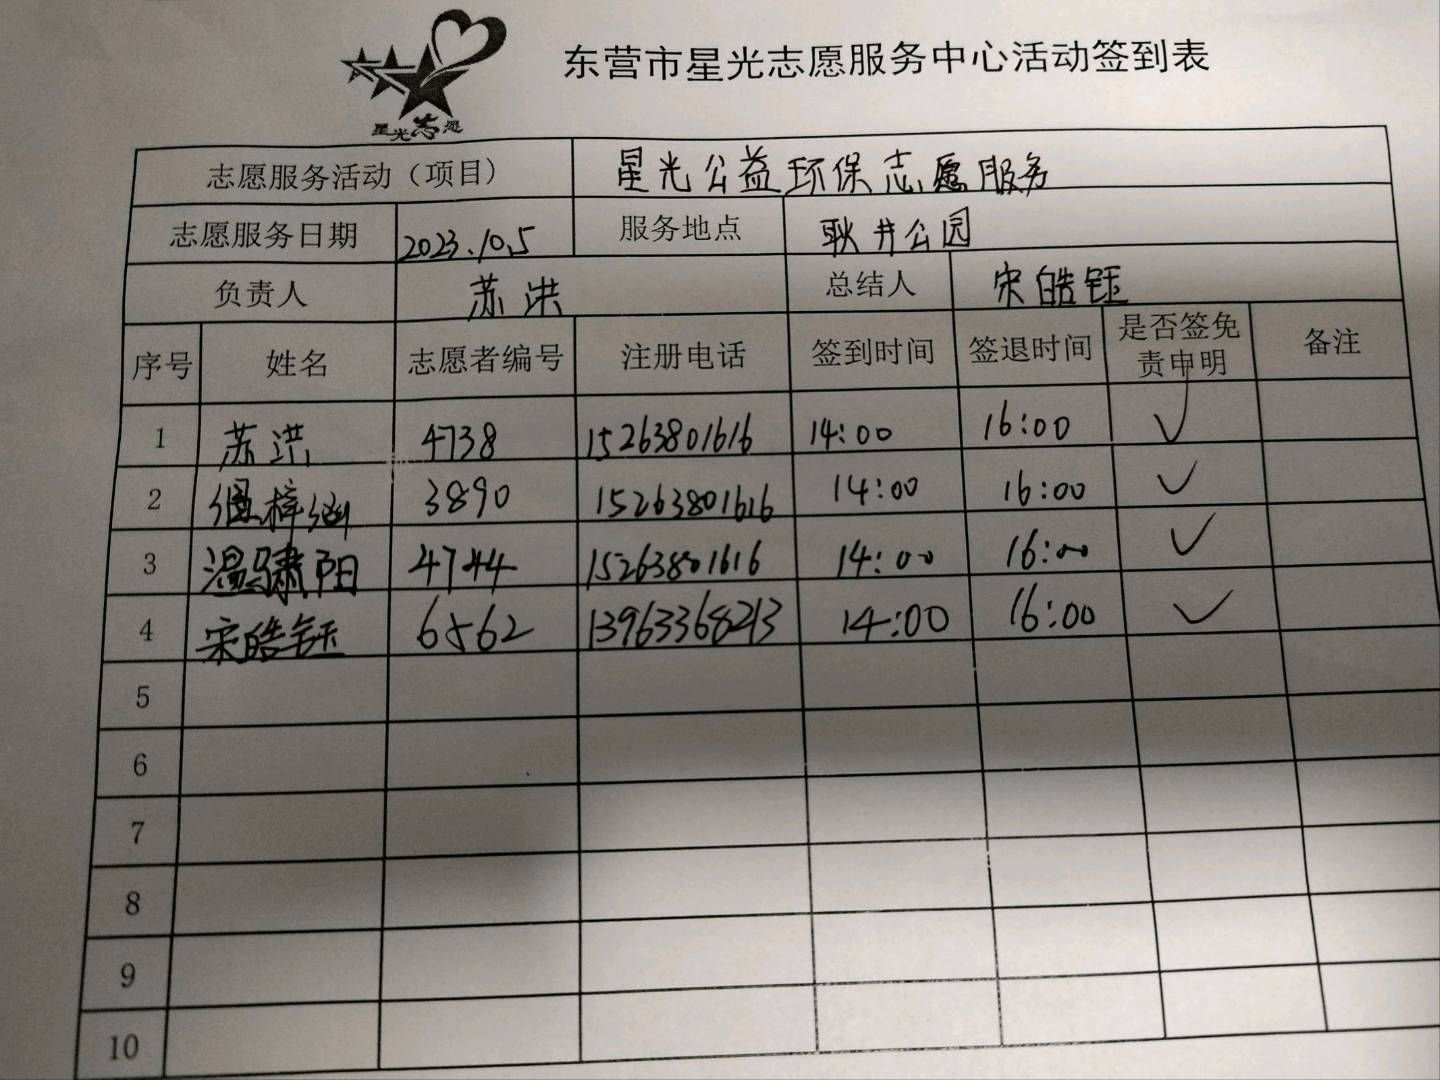 东营市星光志愿服务中心活动签到表
星光志愿
志愿服务活动（项目） 星光公益环保志愿服务
志愿服务日期 2023.10.5 服务地点 耿井公园
负责人 苏洪 总结人 宋皓钰
序号 姓名 志愿者编号 注册电话 签到时间 签退时间 是否签免责申明 备注
1 苏洪 4738 15263801616 14:00 16:00 ✓
2 3890 15263801616 14:00 16:00 ✓
3 温骕阳 4744 15263801616 14:00 16:00 ✓
4 宋皓钰 6562 13963368213 14:00 16:00 ✓
5
6
7
8
9
10